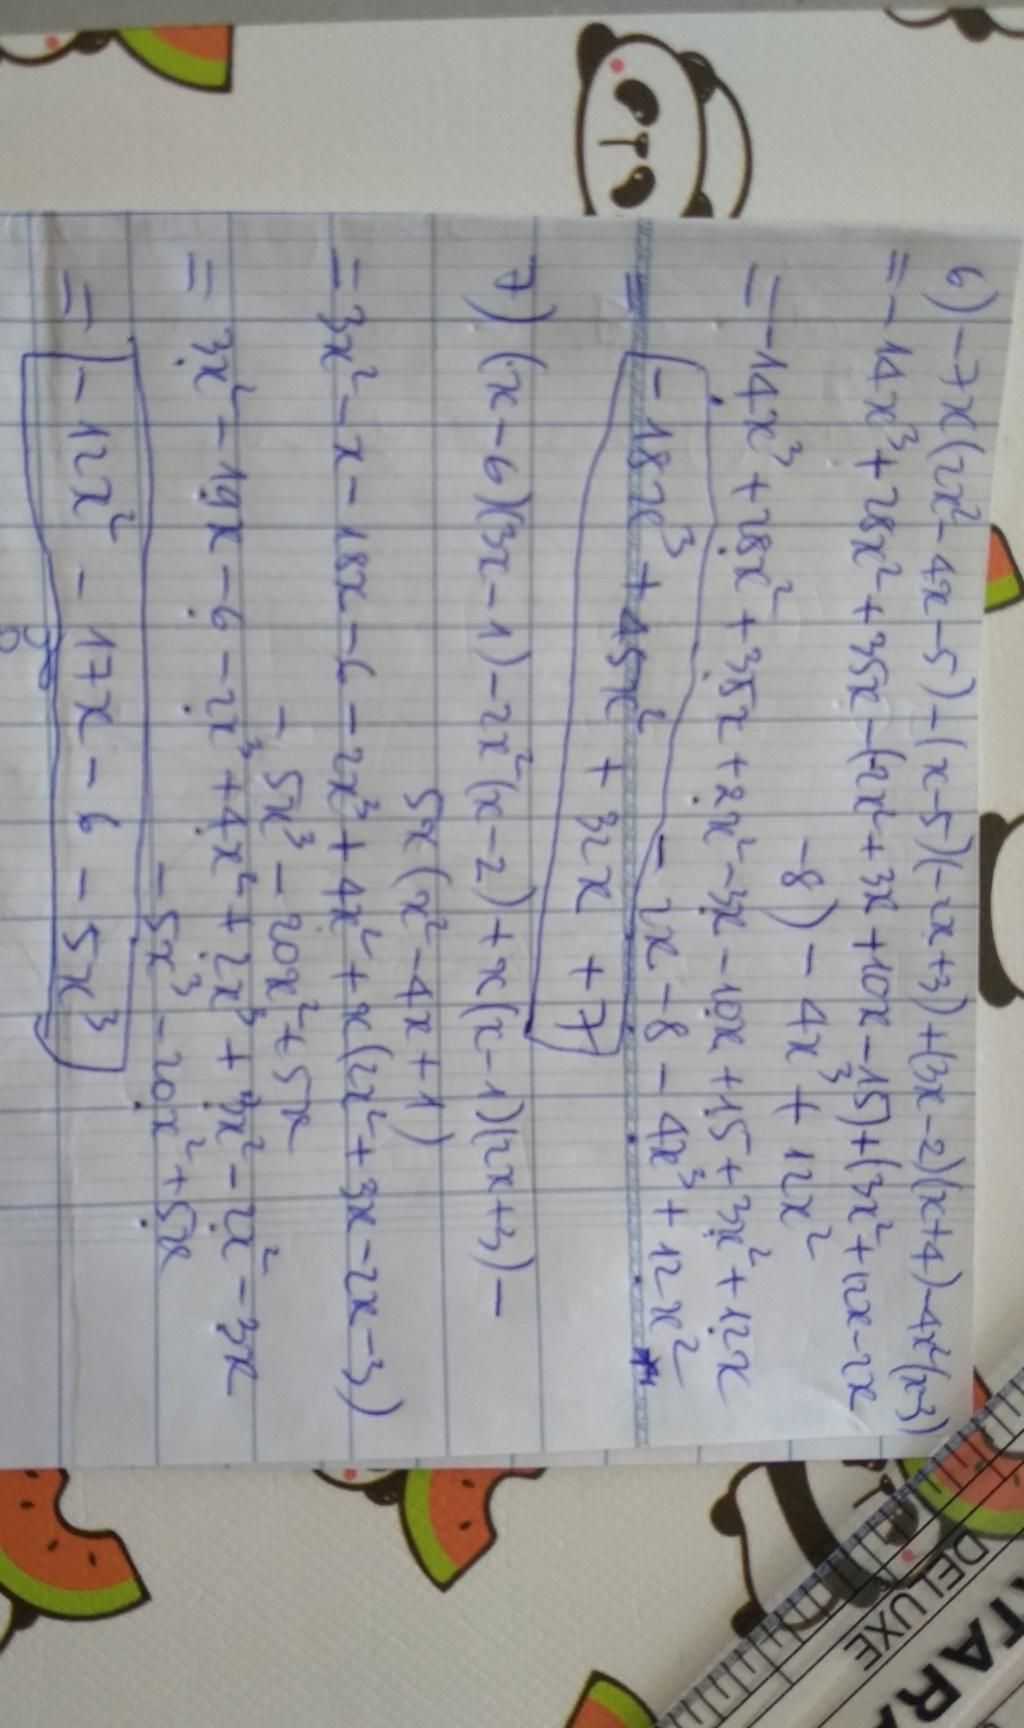 6) -7x(2x²-4x-5)-(x-5)(-2x+3)+(3x-2)(x+4)-4x²(x-3)
= -14x³+28x²+35x-(-2x²+3x+10x-15)+(3x²+12x-2x
-8) - 4x³ + 12x²
= -14x³+28x²+35x+2x²-3x-10x+15+3x²+12x
- 2x - 8 - 4x³ + 12x²
= -18x³ + 45x² + 32x + 7
7) (x-6)(3x-1)-2x²(x-2)+x(x-1)(2x+3)-
5x(x²-4x+1)
= 3x²-x-18x-6-2x³+4x²+x(2x²+3x-2x-3)
- 5x³ - 20x²+5x
= 3x²-19x-6-2x³+4x²+2x³+3x²-2x²-3x
- 5x³ - 20x²+5x
= -12x² - 17x - 6 - 5x³
DELUXE